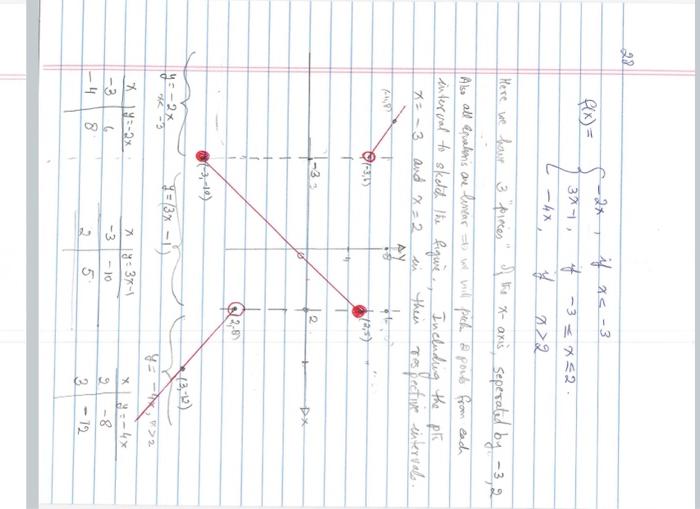 28
f(x) = { -2x, if x < -3
3x-1, if -3 ≤ x ≤ 2.
-4x, if x > 2
Here we have 3 "pieces" of the x-axis, seperated by -3, 2
Also all equations are linear ⇒ we will pick 2 points from each
interval to sketch the figure, Including the pts
x = -3 and x = 2 in their respective intervals.
y
8
6
(-4,8)
(-3,6)
4
(2,5)
-3
2
x
(-3,-10)
(2,-8)
(3,-12)
y = -2x
x < -3
y = (3x - 1)
y = -4x, x > 2
x | y = -2x
-3 | 6
-4 | 8
x | y = 3x-1
-3 | -10
2 | 5
x | y = -4x
2 | -8
3 | -12